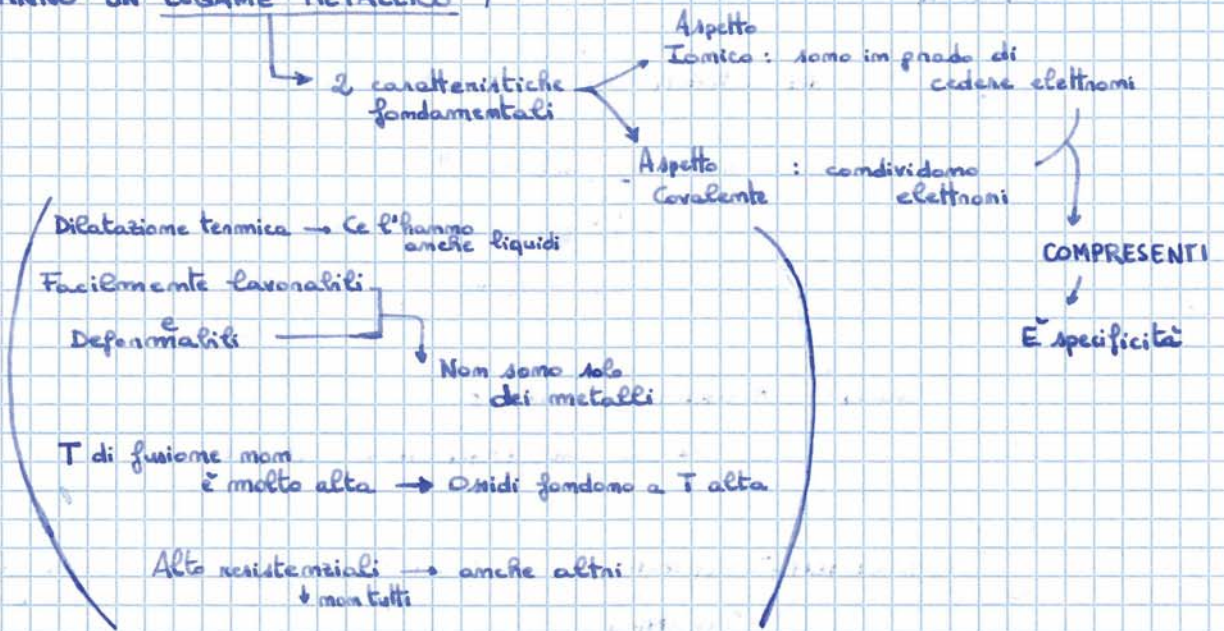 UN LEGAME METALLICO
2 caratteristiche
fondamentali
Aspetto
Ionico : sono in grado di
cedere elettroni
Aspetto : condividono
Covalente elettroni
COMPRESENTI
È specificità
Dilatazione termica → Ce l'hanno
anche liquidi
Facilmente lavorabili
e
Deformabili
Non sono solo
dei metalli
T di fusione non
è molto alta → Ossidi fondono a T alta
Alto resistenziali → anche altri
↓ non tutti